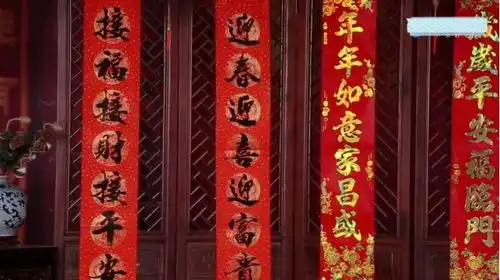 歲歲平安福臨門
年年如意家昌盛
迎春迎喜迎富貴
接福接財接平安